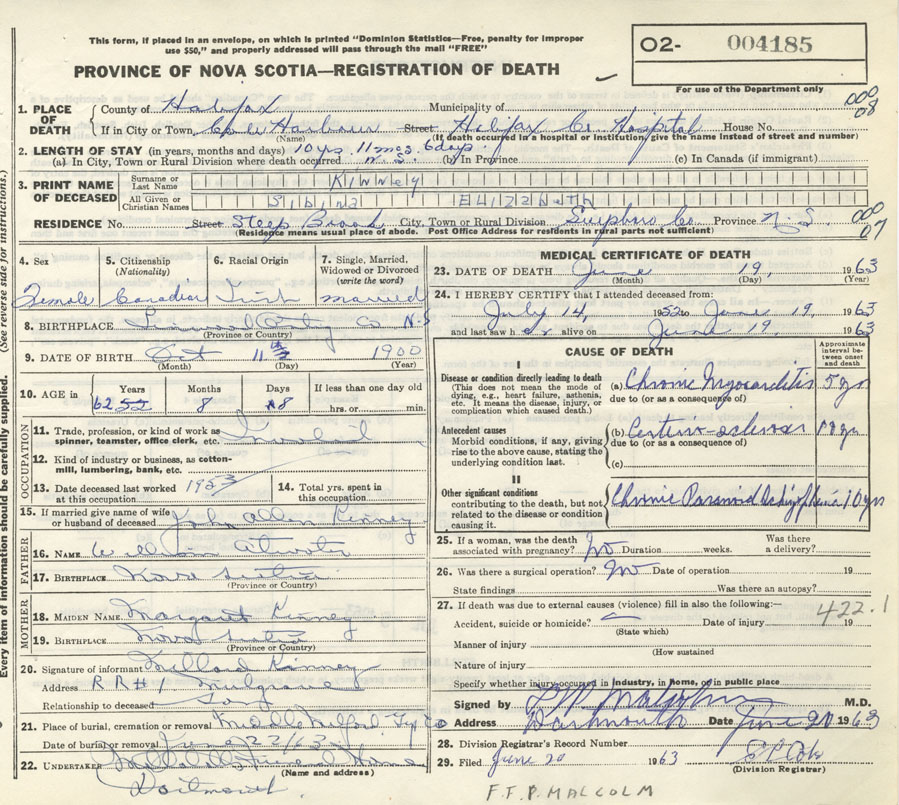 This form, if placed in an envelope, on which is printed "Dominion Statistics—Free, penalty for improper
use $50," and properly addressed will pass through the mail "FREE"
O2- 004185
PROVINCE OF NOVA SCOTIA—REGISTRATION OF DEATH
For use of the Department only
000
08
1. PLACE OF DEATH
County of Halifax Municipality of
If in City or Town, Cole Harbour Street Halifax Co. Hospital House No.
(Name) (If death occurred in a hospital or institution, give the name instead of street and number)
2. LENGTH OF STAY (in years, months and days) 10 yrs. 11 mos. 6 days.
(a) In City, Town or Rural Division where death occurred N.S. (b) In Province (c) In Canada (if immigrant)
3. PRINT NAME OF DECEASED
Surname or Last Name Kinney
All Given or Christian Names Sibina Elizabeth
RESIDENCE No. Street Steep Brook City, Town or Rural Division Guysboro Co. Province N.S.
(Residence means usual place of abode. Post Office Address for residents in rural parts not sufficient)
000
07
4. Sex Female
5. Citizenship (Nationality) Canadian
6. Racial Origin Irish
7. Single, Married, Widowed or Divorced (write the word) married
8. BIRTHPLACE Linwood Co N.S
(Province or Country)
9. DATE OF BIRTH Oct 11 1900
(Month) (Day) (Year)
10. AGE in Years 62 52 Months 8 Days 8 If less than one day old hrs. or min.
OCCUPATION
11. Trade, profession, or kind of work as spinner, teamster, office clerk, etc.
12. Kind of industry or business, as cotton-mill, lumbering, bank, etc.
13. Date deceased last worked at this occupation 1953
14. Total yrs. spent in this occupation
15. If married give name of wife or husband of deceased John Allen Kinney
FATHER
16. NAME William
17. BIRTHPLACE Nova Scotia
(Province or Country)
MOTHER
18. MAIDEN NAME Margaret Kinney
19. BIRTHPLACE Nova Scotia
(Province or Country)
20. Signature of informant Millard Kinney
Address RR#1 Mulgrave
Relationship to deceased Son
21. Place of burial, cremation or removal Middle Milford
Date of burial or removal June 22/63
22. UNDERTAKER Funeral Home
(Name and address)
Dartmouth
MEDICAL CERTIFICATE OF DEATH
23. DATE OF DEATH June 19, 1963
(Month) (Day) (Year)
24. I HEREBY CERTIFY that I attended deceased from:
July 14, 1952 to June 19, 1963
and last saw her alive on June 19 1963
CAUSE OF DEATH
Approximate interval between onset and death
I
Disease or condition directly leading to death
(This does not mean the mode of dying, e.g., heart failure, asthenia, etc. It means the disease, injury, or complication which caused death.)
(a) Chronic Myocarditis 5 yrs
due to (or as a consequence of)
Antecedent causes
Morbid conditions, if any, giving rise to the above cause, stating the underlying condition last.
(b)
due to (or as a consequence of)
(c)
II
Other significant conditions
contributing to the death, but not related to the disease or condition causing it.
Chronic Paranoid Schizophrenia 10 yrs
25. If a woman, was the death associated with pregnancy? No Duration weeks. Was there a delivery?
26. Was there a surgical operation? No Date of operation 19
State findings Was there an autopsy?
27. If death was due to external causes (violence) fill in also the following:—
422.1
Accident, suicide or homicide? Date of injury 19
(State which)
Manner of injury
(How sustained
Nature of injury
Specify whether injury occurred in industry, in home, or in public place
Signed by M.D.
Address Dartmouth Date June 20 1963
28. Division Registrar's Record Number
29. Filed June 20 1963
(Division Registrar)
F.F.P. MALCOLM
Every item of information should be carefully supplied. (See reverse side for instructions.)